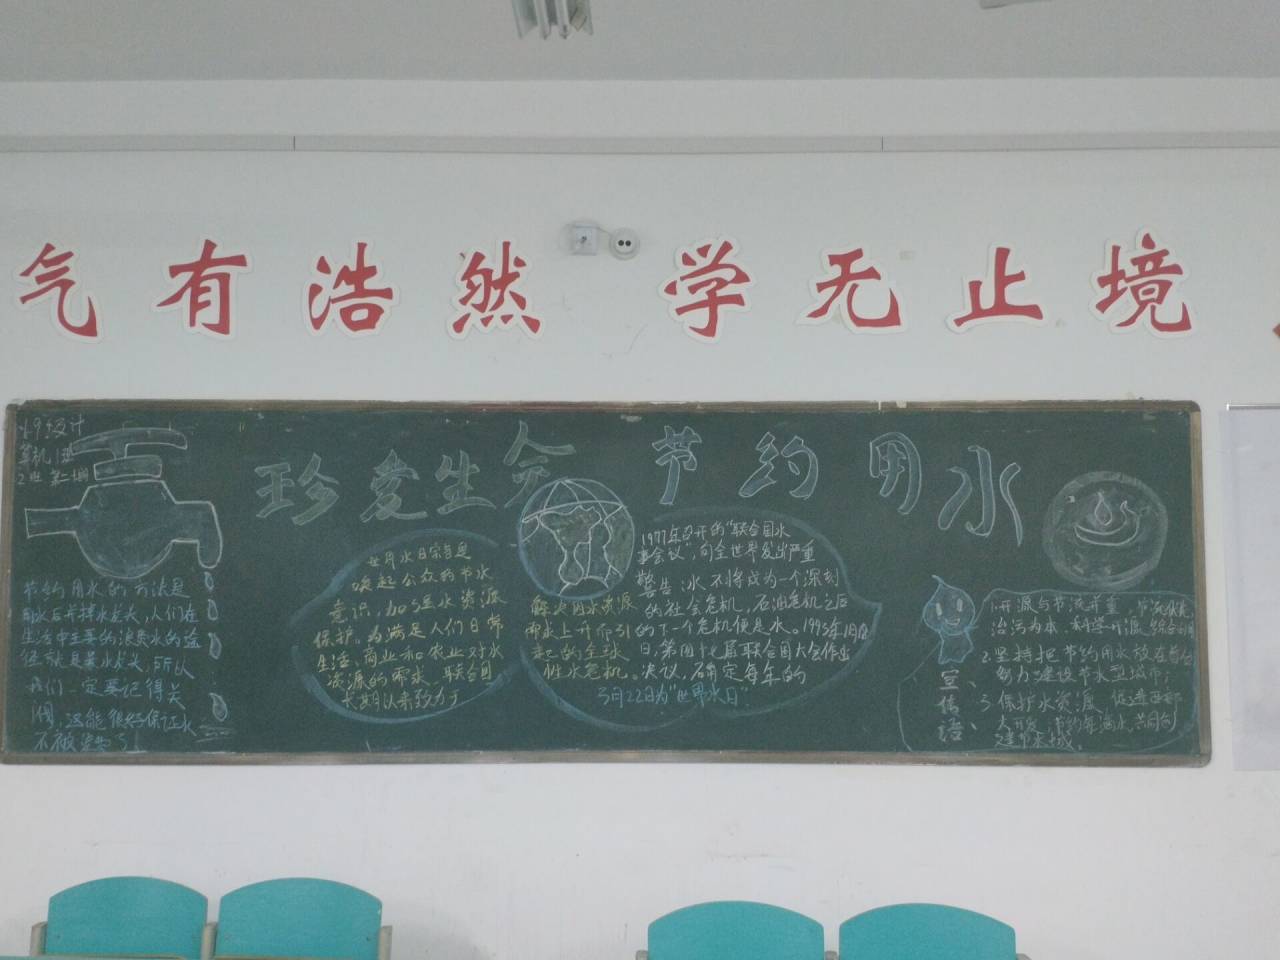 气有浩然 学无止境
19级计
算机1班
珍爱生命 节约用水
节约用水的方法是
用水后并拧水龙头，人们在
生活中主要的浪费水的途
径就是关水龙头，所以
我们一定要记得关
闸，这能很好保证水
不被浪费了
世界水日宗旨是
唤起公众的节水
意识，加强水资源
保护。为满足人们日常
生活、商业和农业对水
资源的需求，联合国
长期以来致力于
解决因水资源
需求上升而引
起的全球
性水危机。
1977年召开的"联合国水
事会议"，向全世界发出严重
警告：水不将成为一个深刻
的社会危机，石油危机之后
的下一个危机便是水。1993年1月18
日，第四十七届联合国大会作出
决议，确定每年的
3月22日为"世界水日"
宣传语、
1.开源与节流并重，节流优先
治污为本，科学开源，综合利用
2.坚持把节约用水放在首位
努力建设节水型城市；
3.保护水资源，促进西部
大开发，节约每滴水，共同创
建节水城。